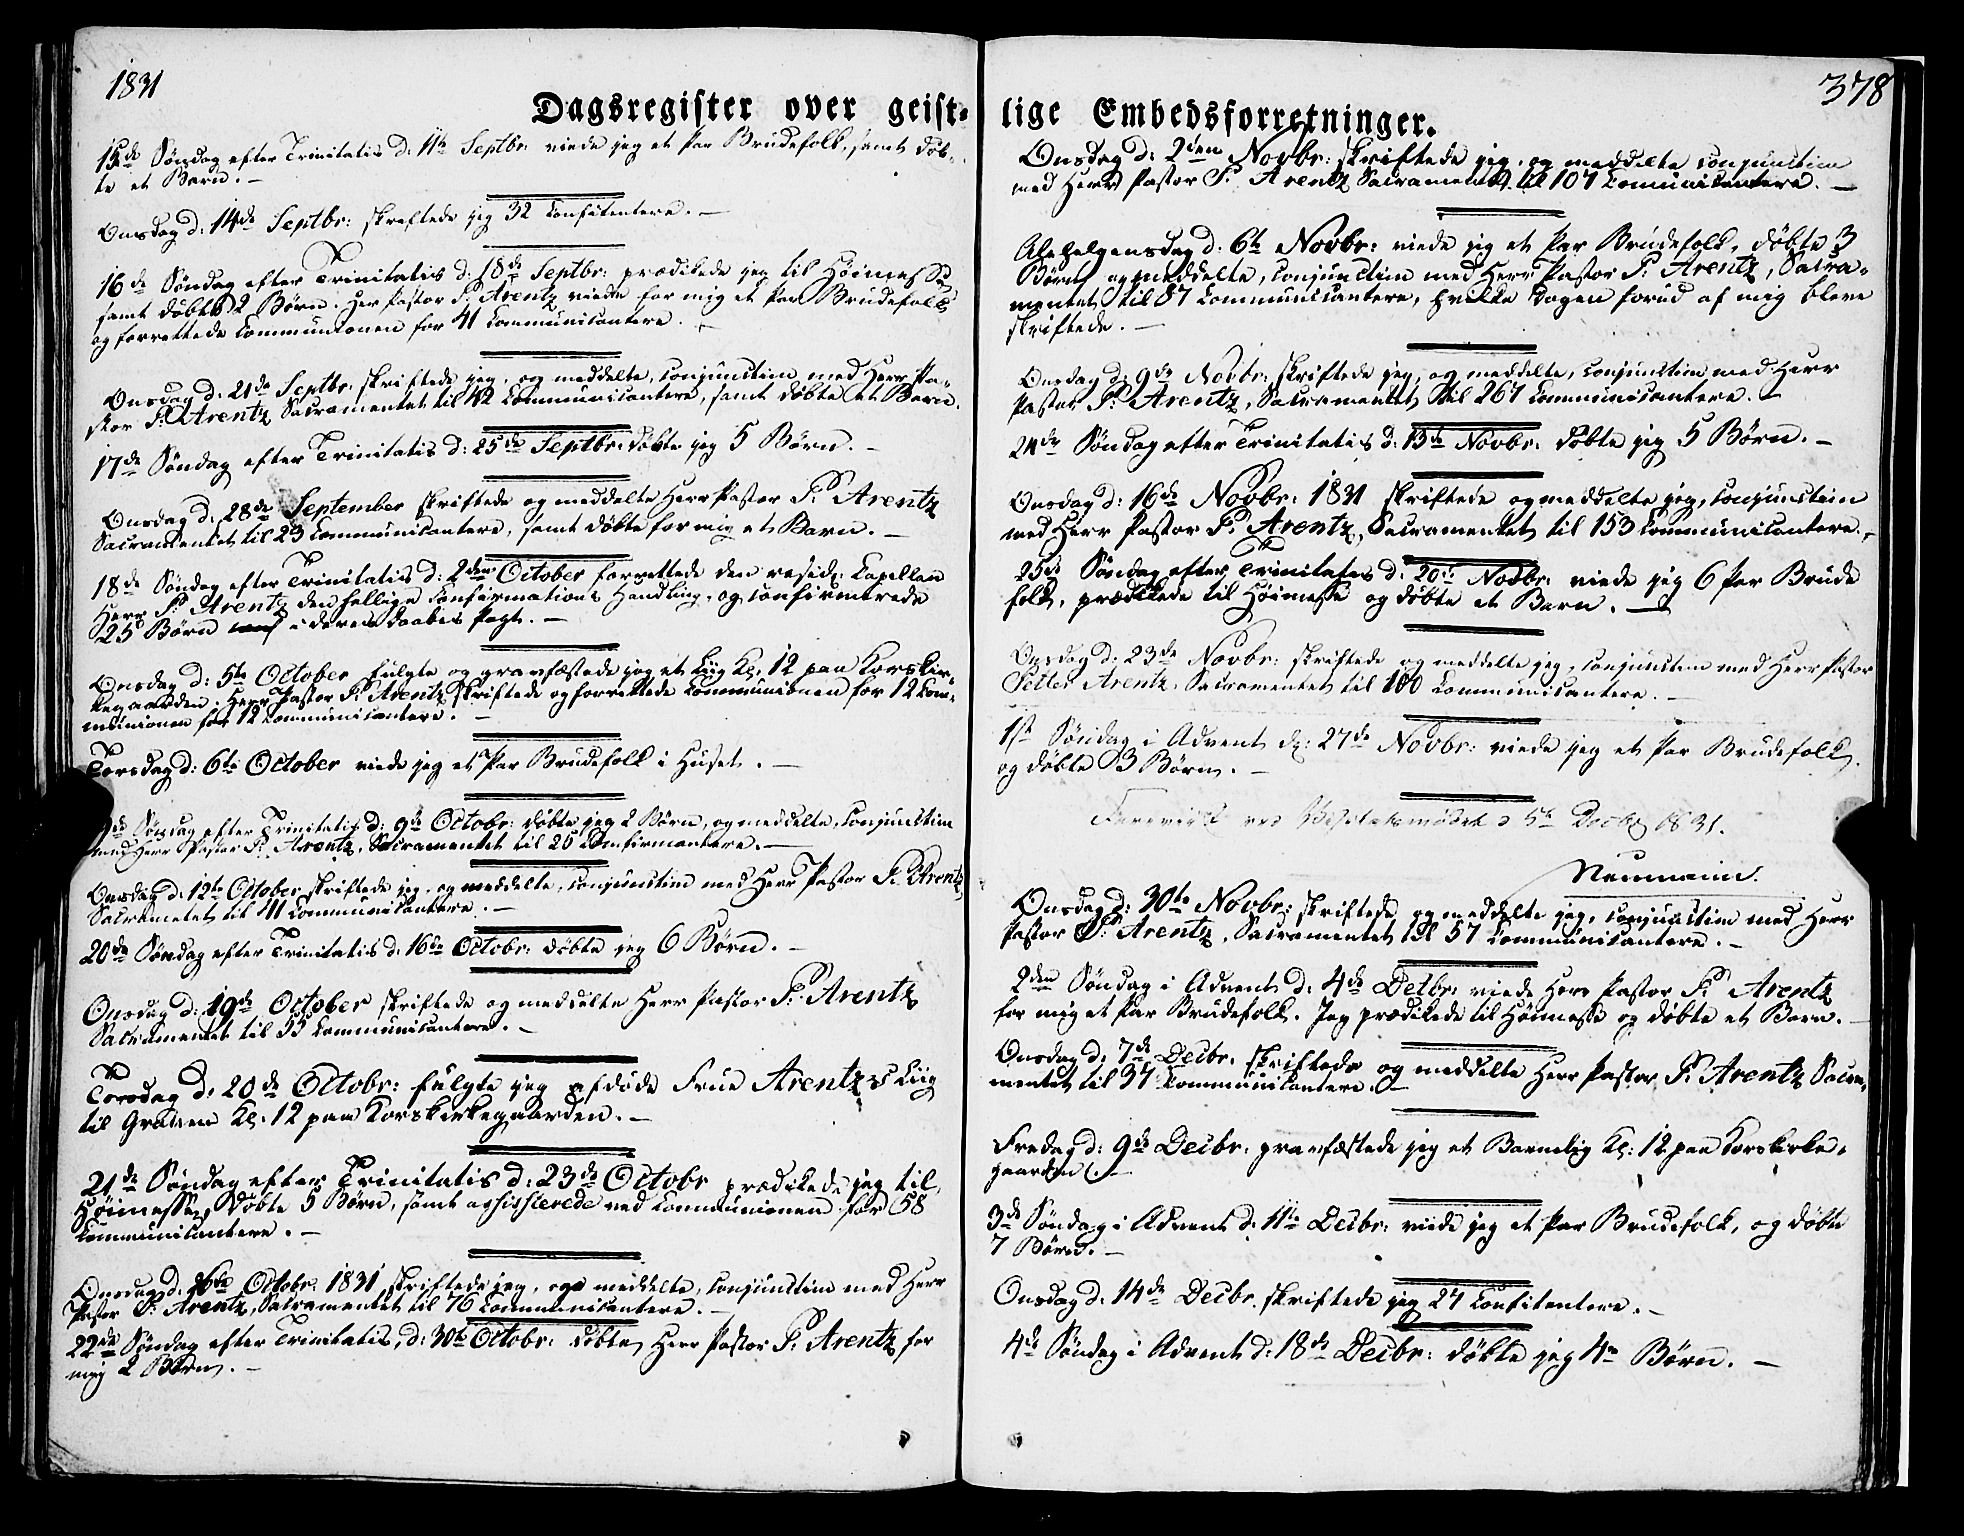 1831
Dagsregister over geist-
15de Søndag efter Trinitatis d: 11te Septbr: viede jeg et Par Brudefolk, samt døb-
te et Barn. –
Onsdag d: 14de Septbr: skriftede jeg 32 Confitentere. –
16de Søndag efter Trinitatis d: 18de Septbr: prædikede jeg til Høimesse
samt døbte 2 Børn. Her Pastor P. Arentz viede for mig et Par Brudefolk
og forrettede Communionen for 41 Communicantere. –
Onsdag d: 21de Septbr: skriftede jeg, og meddelte, conjunctim med Herr Pa-
stor P. Arentz Sacramentet til 42 Communicantere, samt døbte et Barn.
17de Søndag efter Trinitatis d: 25de Septbr: døbte jeg 5 Børn. –
Onsdag d: 28de September skriftede og meddelte Herr Pastor P. Arentz
Sacramentet til 23 Communicantere, samt døbte for mig et Barn. –
18de Søndag efter Trinitatis d: 2den October forrettede den resid: Capellan
Herr P. Arentz den hellige Confirmations Handling, og confirmerede
25 Børn i deres Daabes Pagt. –
Onsdag d: 5te October fulgte og gravfæstede jeg et Liig Kl. 12 paa Korskir-
kegaarden. Herr Pastor P. Arentz skriftede og forrettede Communionen for 12 Com-
munionen for 12 Communicantere. –
Torsdag d: 6te October viede jeg et Par Brudefolk i Huset. –
Søndag efter Trinitatis d: 9de Octobr: døbte jeg 2 Børn, og meddelte, Conjunctim
med Herr Pastor P. Arentz, Sacramentet til 26 Confirmantere. –
Onsdag d: 12te October skriftede jeg, og meddelte, conjunctim med Herr Pastor P. Arentz
Sacrametet til 41 Communicantere. –
20de Søndag efter Trinitatis d: 16de Octobr: døbte jeg 6 Børn. –
Onsdag d: 19de October skriftede og meddelte Herr Pastor P. Arentz
Sacramentet til 55 Communicantere. –
Torsdag d: 20de Octobr: fulgte jeg afdøde Frue Arentz's Liig
til Graven Kl. 12 paa Korskirkegaarden. –
21de Søndag efter Trinitatis d: 23de Octobr prædikede jeg til
Høimesse, døbte 5 Børn, samt assisterede ved Communionen for 58
Communicantere. –
Onsdag d. 26de Octobr. 1831 skriftede jeg, og meddelte, conjunctim med Herr
Pastor P. Arentz, Sacramentet til 76 Communicantere. –
22de Søndag efter Trinitatis, d: 30te Octobr: døbte Herr Pastor P. Arentz for
mig 2 Børn. –
378
lige Embedsforretninger.
Onsdag d: 2den Novbr: skriftede jeg, og meddelte conjunctim
med Herr Pastor P. Arentz Sacramentet til 107 Communicantere. –
Alehelgensdag d: 6te Novbr: viede jeg et Par Brudefolk, døbte 3
Børn og meddelte, conjunctim med Herr Pastor P. Arentz, Sacra-
mentet til 87 Communicantere, hvilke Dagen forud af mig bleve
skriftede. –
Onsdag d: 9de Novbr: skriftede jeg, og meddelte, conjunctim med Herr
Pastor P. Arentz, Sacramentet til 267 Communicantere. –
24de Søndag efter Trinitatis d: 13de Novbr: døbte jeg 5 Børn. –
Onsdag d: 16de Novbr: 1831 skriftede og meddelte jeg, conjunctim
med Herr Pastor P. Arentz, Sacramentet til 153 Communicantere. –
25de Søndag efter Trinitatis d: 20de Novbr: viede jeg 6 Par Brude
folk, prædikede til Høimesse og døbte et Barn. –
Onsdag d: 23de Novbr: skriftede og meddelte jeg, conjunctim med Herr Pastor
Petter Arentz, Sacramentet til 100 Communicantere. –
1ste Søndag i Advent d: 27de Novbr: viede jeg et Par Brudefolk,
og døbte 3 Børn. –
Foreviist ved 5te Decbr 1831.
Neumann.
Onsdag d: 30te Novbr: skriftede og meddelte jeg, conjunctim med Herr
Pastor P. Arentz, Sacramentet til 57 Communicantere. –
2den Søndag i Advent d: 4de Decbr: viede Herr Pastor P. Arentz
for mig et Par Brudefolk. Jeg prædikede til Høimesse og døbte et Barn. –
Onsdag d: 7de Decbr: skriftede og meddelte Herr Pastor P. Arentz Sacra-
mentet til 37 Communicantere. –
Fredag d: 9de Decbr: gravfæstede jeg et Barnelig Kl: 12 paa Korskirke-
gaarden. –
3de Søndag i Advent d: 11te Decbr: viede jeg et Par Brudefolk, og døbte
7 Børn. –
Onsdag d. 14de Decbr. skriftede jeg 27 Confitentere. –
4de Søndag i Advent d: 18de Decbr: døbte jeg 4re Børn. –